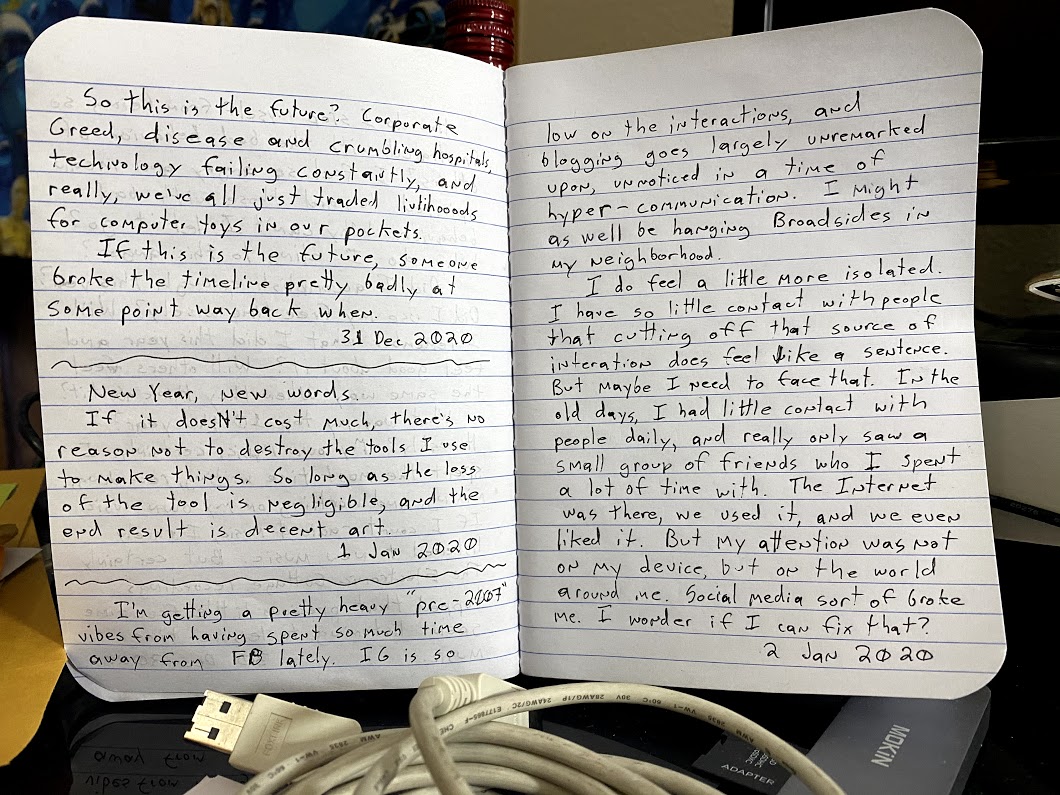 So this is the future? Corporate
Greed, disease and crumbling hospitals,
technology failing constantly, and
really, we've all just traded livlihooods
for computer toys in our pockets.
If this is the future, someone
broke the timeline pretty badly at
some point way back when.
31 Dec 2020
New Year, new words.
If it doesn't cost much, there's no
reason not to destroy the tools I use
to make things. So long as the loss
of the tool is negligible, and the
end result is decent art.
1 Jan 2020
I'm getting a pretty heavy "pre-2007"
vibes from having spent so much time
away from FB lately. IG is so
low on the interactions, and
blogging goes largely unremarked
upon, unnoticed in a time of
hyper-communication. I might
as well be hanging Broadsides in
my neighborhood.
I do feel a little more isolated.
I have so little contact with people
that cutting off that source of
interation does feel like a sentence.
But maybe I need to face that. In the
old days, I had little contact with
people daily, and really only saw a
small group of friends who I spent
a lot of time with. The Internet
was there, we used it, and we even
liked it. But my attention was not
on my device, but on the world
around me. Social media sort of broke
me. I wonder if I can fix that?
2 Jan 2020
MOKiN
ADAPTER